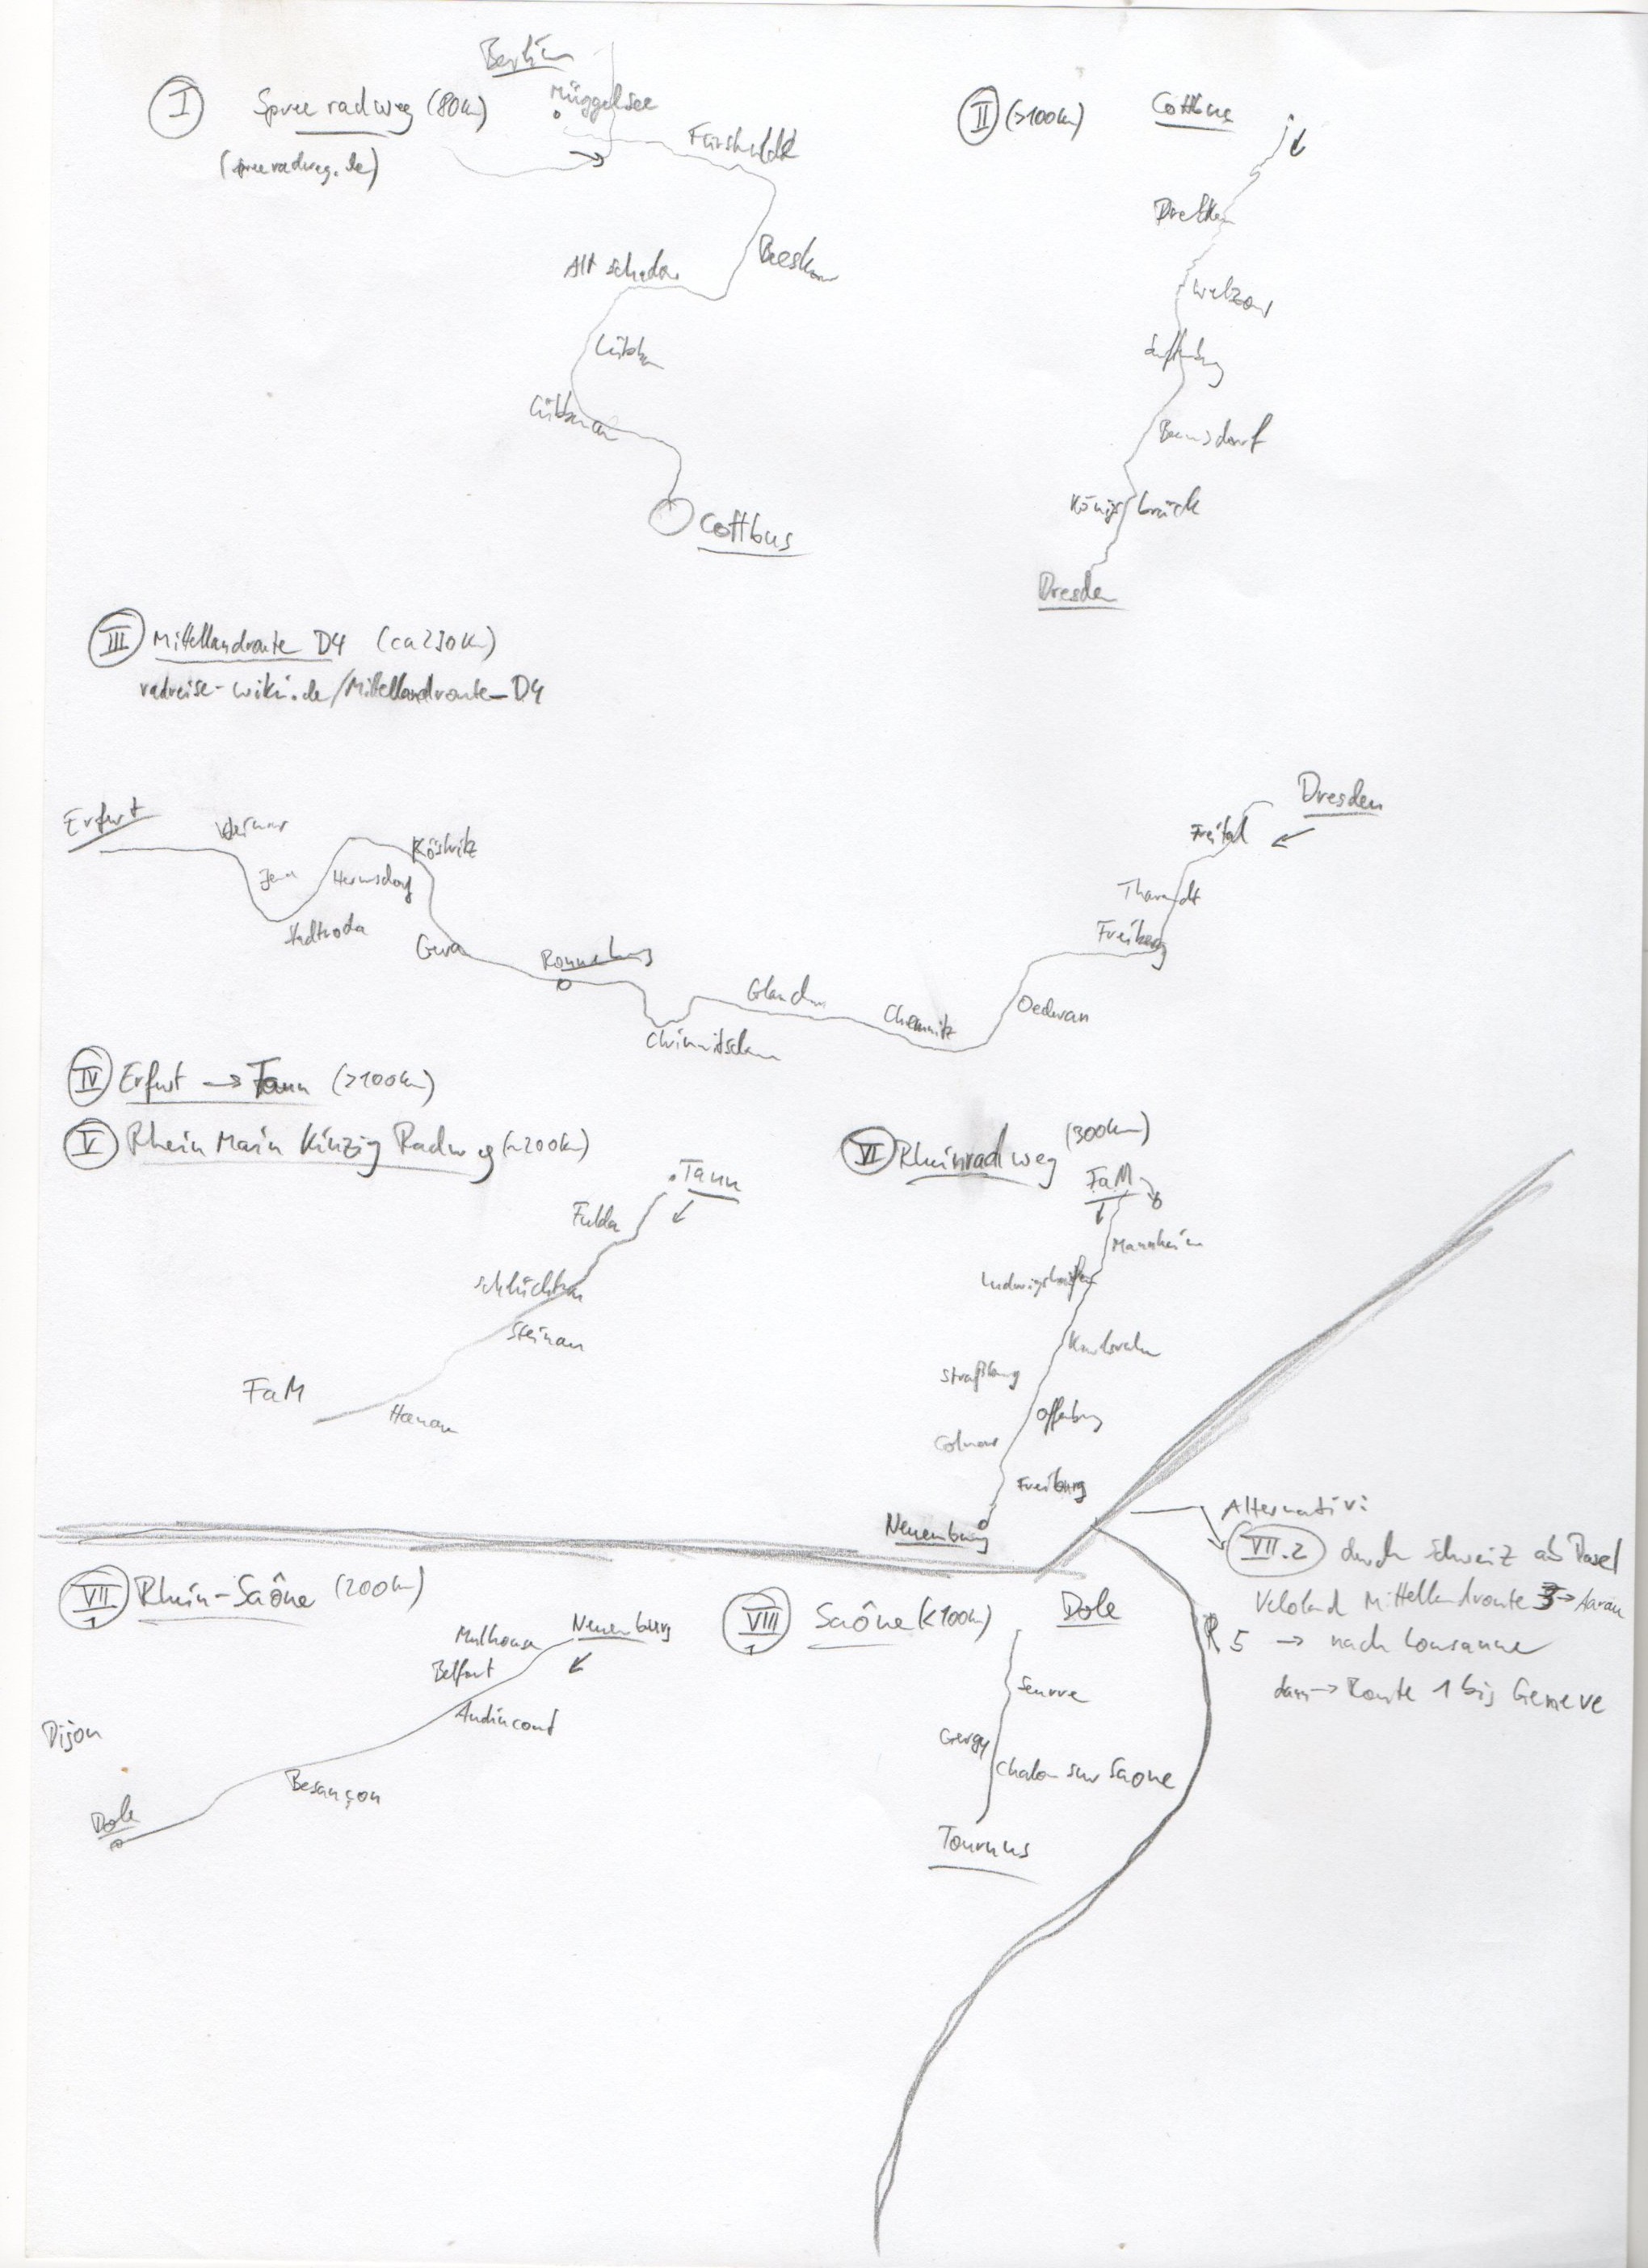 I Spreeradweg (80km)
(spreeradweg.de)
Berlin
Müggelsee
Beeskow
Alt schadow
Lübben
Lübbenau
Cottbus
II (>100km) Cottbus
Drebkau
Welzow
Bernsdorf
Königsbrück
Dresden
III Mittellandroute D4 (ca 230km)
radreise-wiki.de/Mittellandroute_D4
Dresden
Freital
Tharandt
Freiberg
Oederan
Chemnitz
Glauchau
Ronneburg
Gera
Köstritz
Hermsdorf
Stadtroda
Jena
Weimar
Erfurt
IV Erfurt → Tann (>100km)
V Rhein Main Kinzig Radweg (~200km)
Tann
Fulda
Schlüchtern
Steinau
Hanau
FaM
VI Rheinradweg (300km)
FaM
Mannheim
Ludwigshafen
Karlsruhe
Straßburg
Offenburg
Colmar
Freiburg
Neuenburg
VII 1 Rhein-Saône (200km)
Neuenburg
Mulhouse
Belfort
Audincourt
Besançon
Dijon
Dole
VIII 1 Saône (<100km) Dole
Seurre
Gergy
Chalon sur Saone
Tournus
Alternativ:
VII.2 durch Schweiz ab Basel
Veloland Mittellandroute → Aarau
R 5 → nach Lousanne
dann → Route 1 bis Geneve